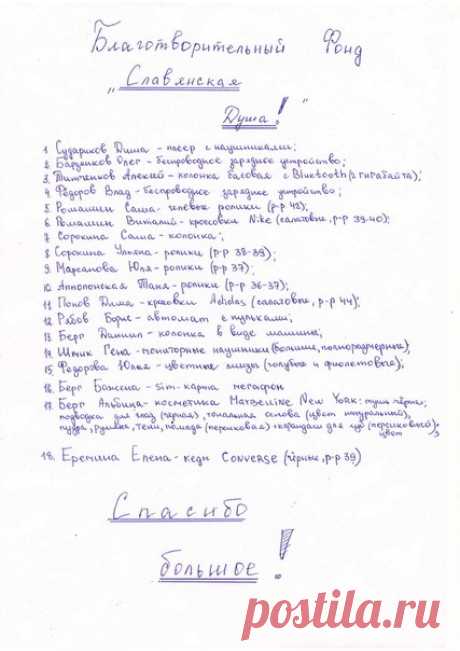 Благотворительный Фонд
„Славянская
Душа!"
1. Судариков Дима - плеер с наушниками;
2. Бардников Олег - беспроводное зарядное устройство;
3. Алексей - колонка басовая с Bluetooth (2 гигабайта);
4. Фёдоров Влад - беспроводное зарядное устройство;
5. Ромашин Саша - гелевые ролики (р-р 42);
6. Ромашин Виталий - кроссовки Nike (салатовые, р-р 39-40);
7. Сорокина Саша - колонка;
8. Сорокина Ульяна - ролики (р-р 38-39);
9. Марсанова Юля - ролики (р-р 37);
10. Таня - ролики (р-р 36-37);
11. Попов Дима - красовки Adidas (салатовые, р-р 44);
12. Рябов Борис - автомат с пульками;
13. Берг Даниил - колонка в виде машины;
14. Гена - мониторные наушники (большие, полноразмерные),
15. Федорова Юлия - цветные линзы (голубые и фиолетовые);
16. Берг Божена - sim-карта мегафон
17. Берг Альбина - косметика Maybelline New York: тушь чёрная;
подводка для глаз (чёрная), тональная основа (цвет натуральный),
пудра, румяна, тени, помада (персиковая) + карандаш для губ (персиковый
цвет);
18. Еремина Елена - кеды Converse (чёрные, р-р 39)
Спасибо
большое!
postila.ru